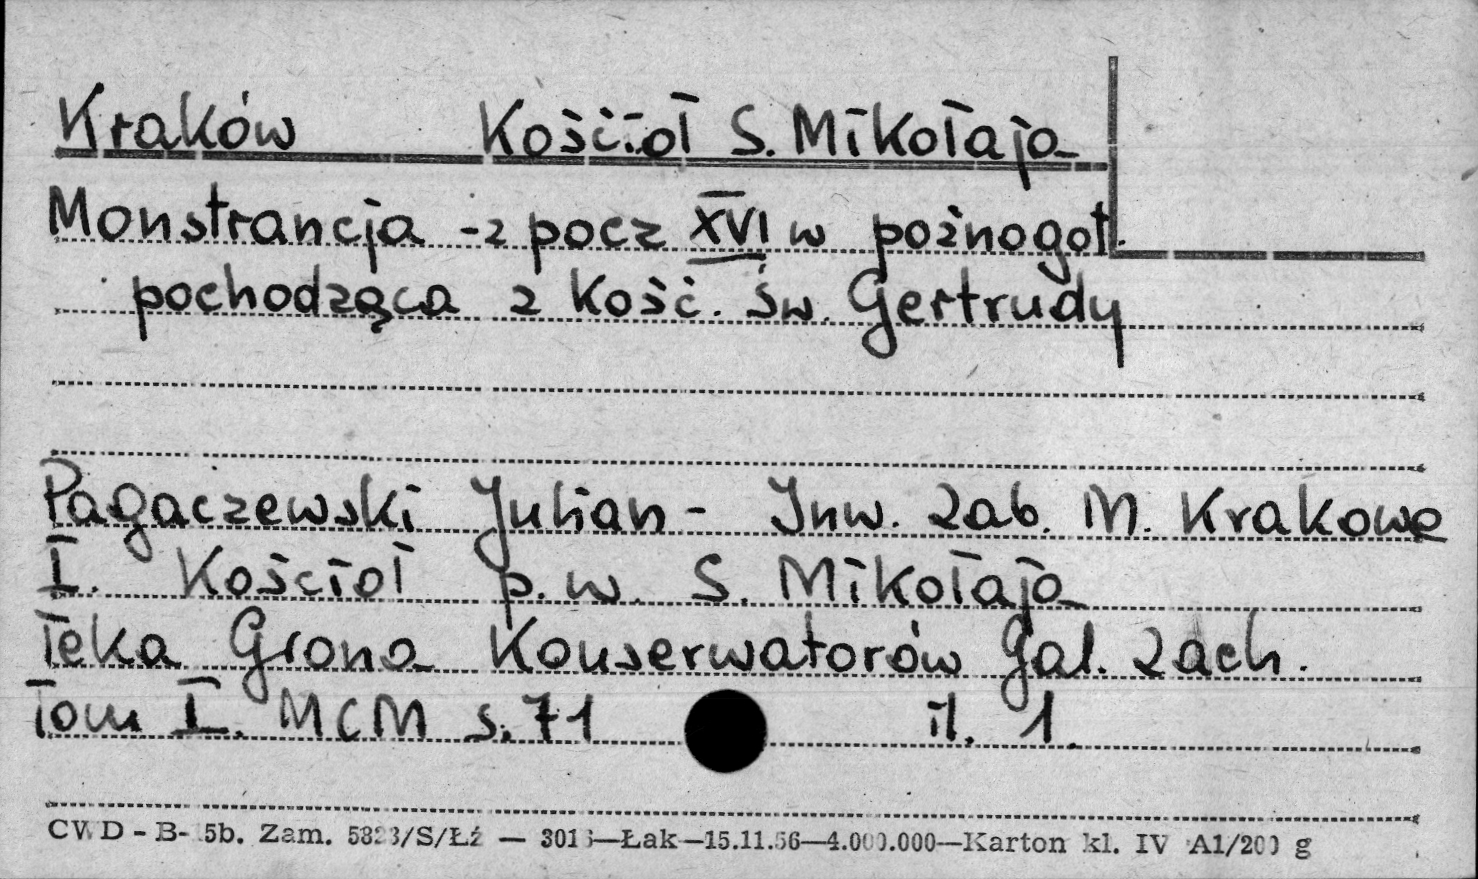 Kraków Kościoł S. Mikołaja
Monstrancja - z pocz XVI w poźnogot.
pochodząca z Kość. św. Gertrudy
Pagaczewski Julian - Inw. Zab. M. Krakowa
I. Kościoł p.w. S. Mikołaja
Teka Grona Konserwatorów Gal. Zach.
Tom I. MCM s. 71 il. 1.
CWD - B- 5b. Zam. /S/Łź — —Łak—15.11.56—4.000.000—Karton kl. IV A1/200 g